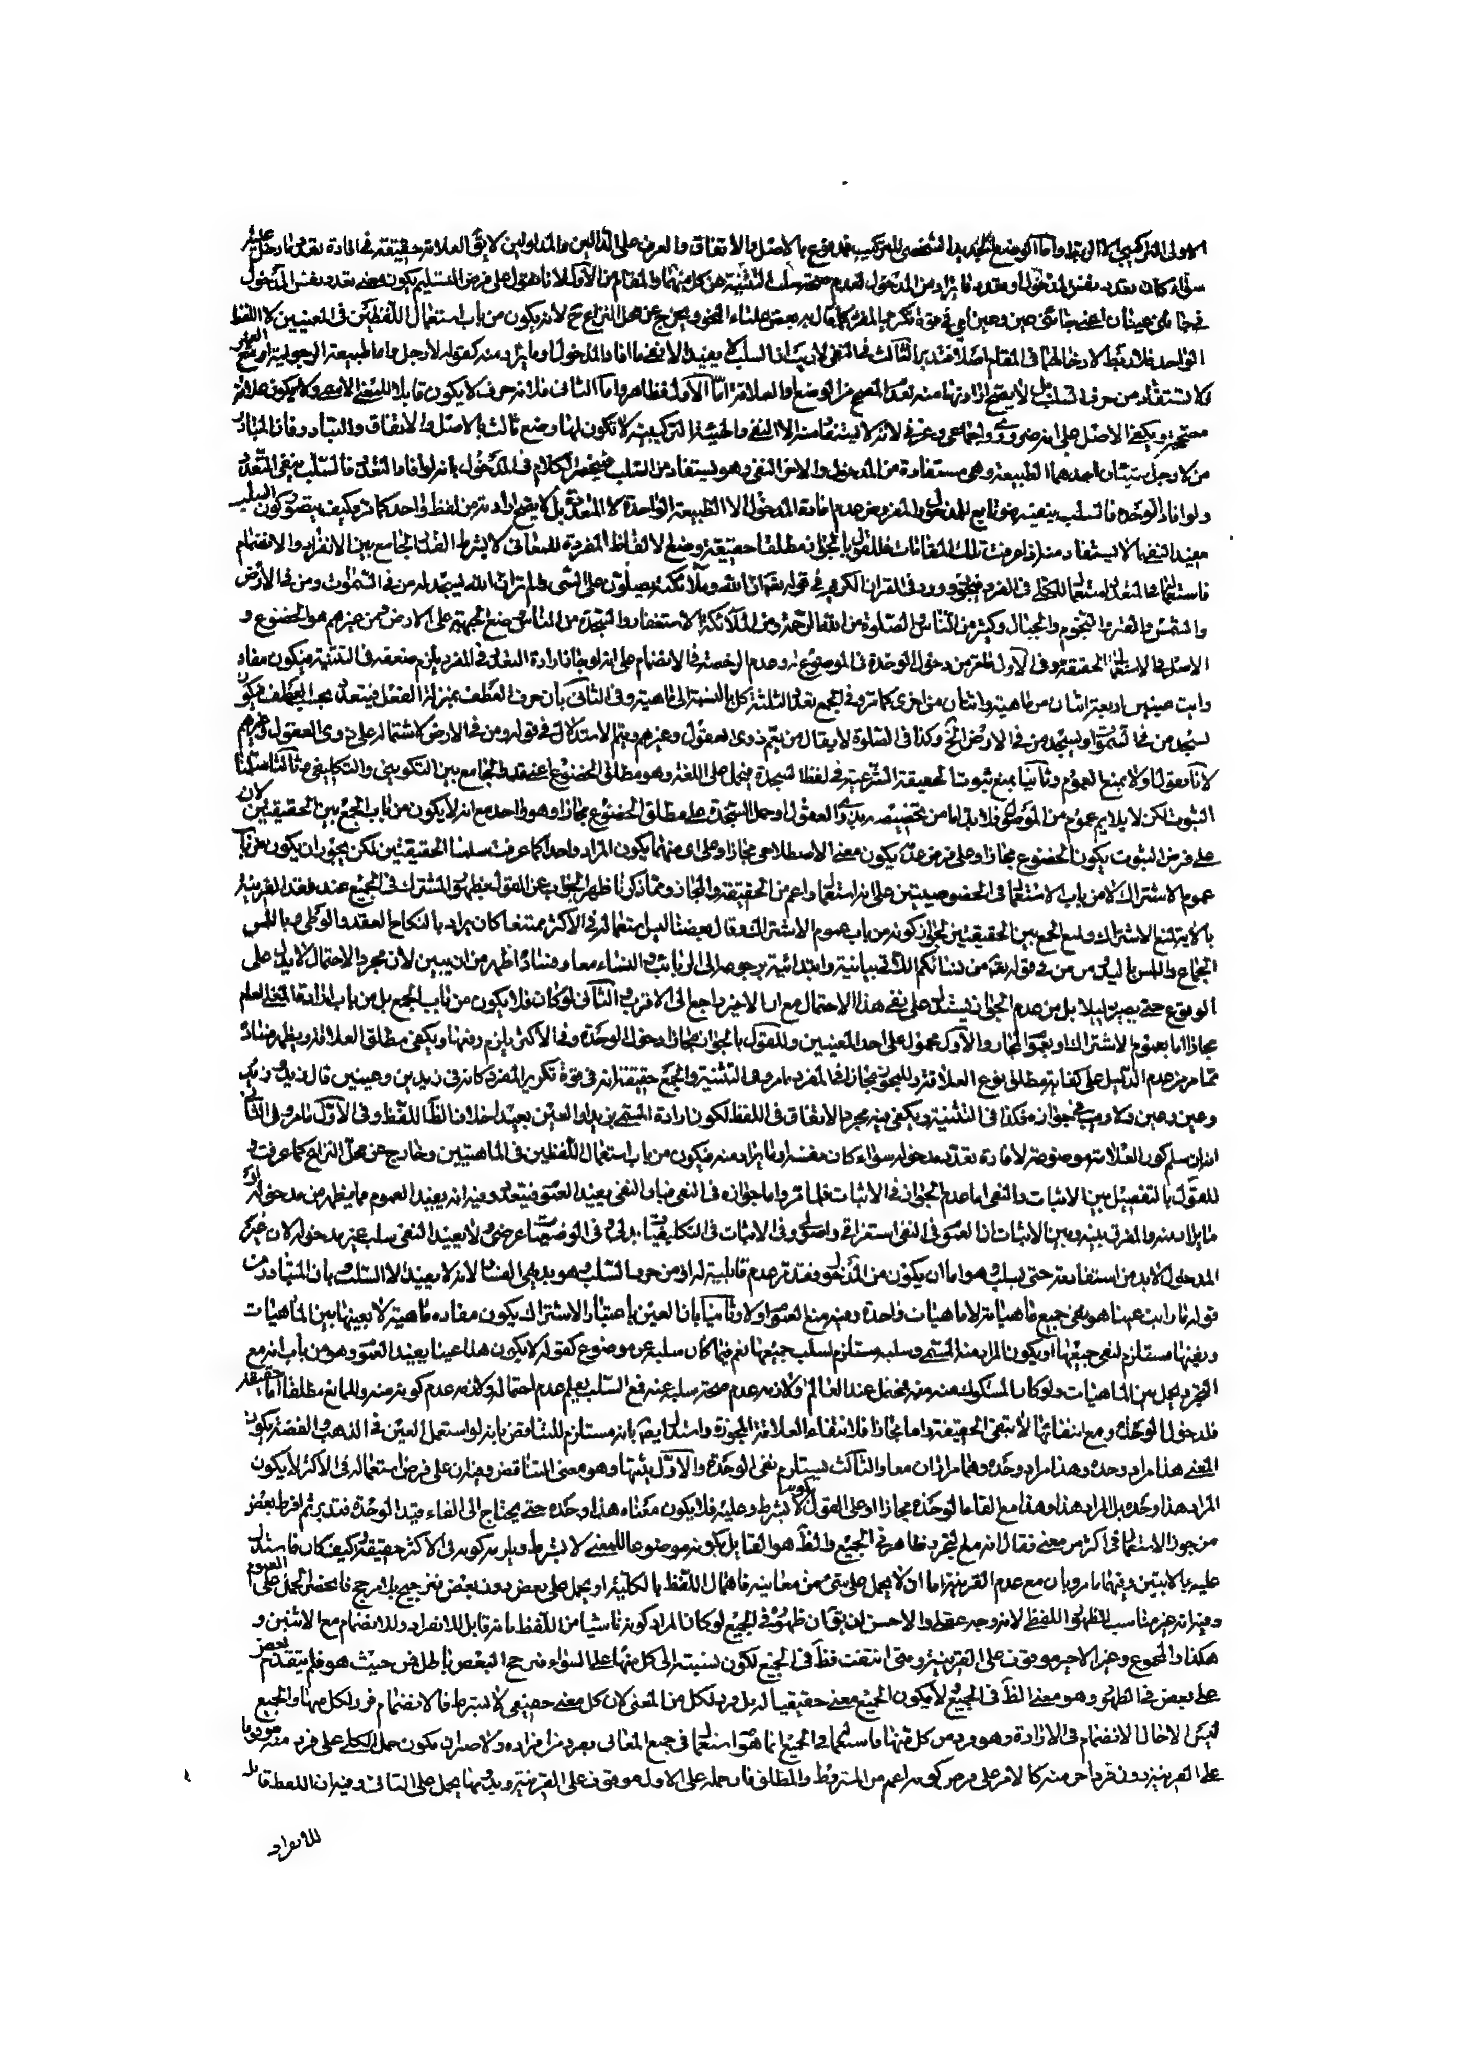 الاولى التركيبى لا الربط واما الوضع الجديد الشخصى للمركب فمدفوع بالاصل والاتفاق والعرف على الدالين والمدلولين لا يق العلاقة حقيقته فى افادة تعدد ما دخل عليه
سواء كان تعدد نفس المدخول او تعدد ما يراد من المدخول لعدم صحة سلب التثنية عن كل منهما والمقام من الاول لانا نقول على فرض التسليم يكون معنى تعدد نفس المدخول
فى جائنى عينان اعنى جائنى عين وعين اى فى قوة تكرير المفرد كما قال به بعض علماء النحو ويخرج عن محل النزاع ح لانه يكون من باب استعمال اللفظين فى المعنيين لا اللفظ
الواحد فلا ربط لادخالهما فى المقام اصلا فتدبر الثالث فى النفى لان بيان السلب لا يفيد الا نفى ما افاد المدخول او ما يراد منه كقوله لا رجل واما طبيعة الرجولية او
فلا تستفاد من حرف السلب بل لا يصح ارادتها منه لعدم المصحح من الوضع او العلاقة اما الاول فظاهر واما الثانى فلانه حرف لا يكون قابلا للمعنى الاسمى ولا يكون علاقة
مصححة ويكفى الاصل على انه ضرورى واجماعى وعرفى لانه لا يستفاد منه الا النفى والهيئة التركيبية لا تكون لها وضع ثالث بالاصل والاتفاق والتبادر فان المتبادر
من لا رجل شيئان احدهما الطبيعة وهى مستفادة من المدخول والاخر النفى وهو يستفاد من السلب فينحصر الكلام فى المدخول بانه لو افاد التعدد فالسلب ينفى التعدد
ولو افاد الوحدة فالسلب ينفيه فهو تابع للمدخول والمفروض عدم افادة المدخول الا الطبيعة الواحدة لا المتعددة بل لا يصح ارادته من لفظ واحد كما مر فكيف يتصور كون السلب
مفيدا لنفى ما لا يستفاد منه اذا عرفت تلك المقامات فللقول بالجواز مطلقا حقيقة وضع الالفاظ المفردة للمعانى لا بشرط القدر الجامع بين الانفراد والانضمام
فاستعمالها فى المتعدد استعمال للكلى فى الفرد فيجوز وورد فى القران الكريم فى قوله تعالى ان الله وملائكته يصلون على النبى الم تر ان الله يسجد له من فى السموات ومن فى الارض
والشمس والقمر والنجوم والجبال وكثير من الناس فالصلوة من الله الرحمة ومن الملائكة الاستغفار والسجدة من الناس وضع الجبهة على الارض ومن غيرهم هو الخضوع و
الاصل فى الاستعمال الحقيقة وفى الاول ما مر من دخول الوحدة فى الموضوع له وعدم الرخصة فى الانضمام على انه لو جاز ارادة التعدد فى المفرد يلزم ضعفه فى التثنية فيكون مفاد
رايت عينين اربعة اثنان من ماهية واثنان من اخرى كما مر وفى الجمع تعدد الثلثة كل بالنسبة الى ماهية وفى الثانى بان حرف العطف بمنزلة الفعل فيتعدد بحسب العطف فيكون
يسجد من فى السموات ويسجد من فى الارض الخ وكذا فى الصلوة لا يقال من يعم ذوى العقول وغيرهم ويتم الاستدلال فى قوله ومن فى الارض لاشتماله على ذوى العقول وغيرهم
لانا نقول اولا بمنع العموم وثانيا بمنع ثبوت الحقيقة الشرعية فى لفظ السجدة فيحمل على اللغة وهو مطلق الخضوع اعنى قدر الجامع بين التكوينى والتكليفى وثالثا سلمنا
الثبوت لكن لا يلايم عموم من الموصول فلا بد اما من تخصيصه بذوى العقول او حمل السجدة على مطلق الخضوع مجازا وهو واحد مع انه لا يكون من باب الجمع بين الحقيقتين لان
على فرض الثبوت يكون الخضوع مجازا وعلى فرض عدمه يكون معنى الاصطلاحى مجازا وعلى اى منهما يكون المراد واحدا كما عرفت سلمنا الحقيقتين لكن يجوز ان يكون من باب
عموم الاشتراك لا من باب الاستعمال فى الخصوصيتين على انه استعمال واعم من الحقيقة والمجاز ومما ذكرنا ظهر الجواب عن القول بظهور المشترك فى الجميع عند فقد القرينة
بالايتين لمنع الاشتراك ومنع الجمع بين الحقيقتين لجواز كونه من باب عموم الاشتراك وقال بعضنا ليس استعماله فى الاكثر ممتنعا كان يراد بالنكاح العقد والوطى وباللمس
الجماع واللمس باليد ومن فى قوله تعالى من نسائكم اللاتى بيانية وابتدائية برجوعه الى الربائب والنساء معا وفساده اظهر من ان يبين لان مجرد الاحتمال لا يدل على
الوقوع حتى يصير دليلا بل من عدم الجواز يستدل على نفى هذا الاحتمال مع ان الاخير راجع الى الاقرب والثانى لو كان فلا يكون من باب الجمع بل من باب ارادة المعنى العام
مجازا اما بعموم الاشتراك او بعموم المجاز والاول محمول على احد المعنيين وللقول بالجواز مجازا دخول الوحدة وفى الاكثر يلزم رفعها ويكفى مطلق العلاقة ويظهر فساده
مما مر من عدم الدليل على كفاية مطلق نوع العلاقة وللمجوز مجازا فى المفرد ما مر وفى التثنية والجمع حقيقة انه فى قوة تكرير المفرد كما مر فى زيدين وعينين قال زيد وزيد
وعين وعين ولا ريب فى جوازه فكذا فى التثنية ويكفى فيه مجرد الاتفاق فى اللفظ لكون ارادة المسمى بزيد او العين بعيدا خلاف الظاهر اللفظ وفى الاول ما مر وفى الثانى
انه ان سلم كون العلامة موضوعة لافادة تعدد مدخوله سواء كان نفسه او ما يراد منه فيكون من باب استعمال اللفظين فى الماهيتين وخارج عن محل النزاع كما عرفت و
للقول بالتفصيل بين الاثبات والنفى اما عدم الجواز فى الاثبات فلما مر واما جوازه فى النفى فبان النفى يفيد العموم فيتعدد وفيه انه يفيد العموم فيما يظهر من مدخوله او
ما يراد منه والفرق بينه وبين الاثبات ان العموم فى النفى استغراقى واصولى وفى الاثبات فى التكليفيات بدلى وفى الوضعيات عرضى ولا يفيد النفى سلب غير مدخوله لان غير
المدخول لا بد من استفادته حتى يسلب هو اما ان يكون من المدخول وقد مر عدم قابليته له او من حرف السلب هو بديهى الفساد لانه لا يفيد الا السلب بان المتبادر من
قوله ما رايت عينا هو نفى جميع ماهياته لا ماهيات واحدة وفيه منع العموم اولا وثانيا بان العين باعتبار الاشتراك يكون مفاده ماهية لا بعينها بين الماهيات
ونفيها مستلزم لنفى جميعها او يكون المراد منه المسمى وسلبه مستلزم لسلب جميعها نعم فيما كان سلبه عن موضوع كقوله لا يكون هذا عينا يفيد العموم وهو من باب انه مع
التجرد مجمل بين الماهيات ولو كان المشكوك منه ومنه محتمل عند العالم ولازمه عدم صحة سلبه عنه فمع السلب يعلم عدم احتماله ولازمه عدم كونه منه وللمانع مطلقا اما حقيقة
فلدخول الوحدة ومع انتفائها لا تبقى الحقيقة واما مجازا فلانتفاء العلاقة المجوزة واستدل ايضا بانه مستلزم للتناقض بانه لو استعمل العين فى الذهب والفضة يكون
المعنى هذا مراد وحده وهذا مراد وحده وهما مرادان معا والثالث يستلزم نفى الوحدة والاول يثبتها وهو معنى التناقض وفيه ان على فرض استعماله فى الاكثر لا يكون
المراد هذا وحده بل المراد هذا وهذا مع الغاء الوحدة مجازا او على القول بكونها لا بشرط وعليه فلا يكون معناه هذا وحده حتى يحتاج الى الغاء قيد الوحدة فتدبر ثم افرط بعض
من جوز الاستعمال فى اكثر من معنى فقال انه مع التجرد ظاهر فى الجميع والظاهر هو القائل بكونه موضوعا للمعنى لا بشرط ويلزمه كونه فى الاكثر حقيقة كيف كان فاستدل
عليه بالايتين وفيهما ما مر وبان مع عدم القرينة اما ان لا يحمل على شئ من معانيه فاهمال اللفظ بالكلية او يحمل على بعض دون بعض فترجيح بلا مرجح فانحصر الحمل على العموم
وفيه انه غير مناسب لظهور اللفظ لانه وجه عقلى والاحسن ان يق ان ظهوره فى الجميع لو كان المراد كونه ناشيا من اللفظ مانه قابل للانفراد وللانضمام مع الاثنين و
هكذا والمجموع وغير الاخير موقوف على القرينة ومتى انتفت فظاهر فى الجميع لكون نسبته الى كل منها على السواء فترجيح البعض باطل فمن حيث هو فلم يتقدم بعض
على بعض فى الظهور وهو معنى الظاهر فى الجميع لا يكون الجميع معنى حقيقيا له بل فرد لكل من المعنى لان كل معنى حقيقى لا بشرط فالانضمام فرد لكل منها والجميع
ليس الا حال الانضمام فى الارادة وهو فرد من كل منها فاستعماله فى الجميع انما هو استعمال فى جميع المعانى بفرد من افراده ولا ضرر ان يكون حمل الكلى على فرد منه موقوفا
على القرينة دون فرد اخر منه كالامر على فرض كونه اعم من المشروط والمطلق فان حمله على الاول موقوف على القرينة وبدونها يحمل على الثانى وفيه ان اللفظ قابل
للانفراد